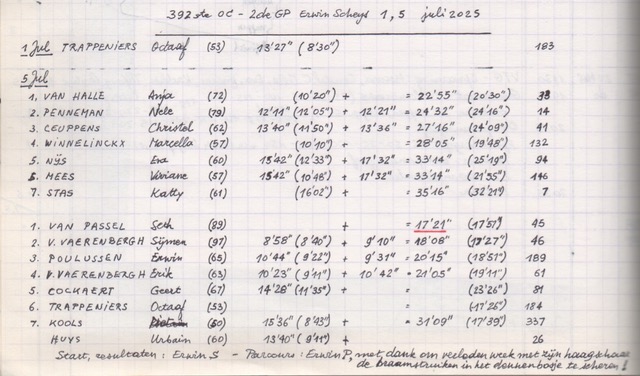 392ste OC - 2de GP Erwin Scheys 1, 5 juli 2025
1 Jul TRAPPENIERS Octaaf (53) 13'27" (8'30") 183
5 Jul
1. VAN HALLE Anja (72) (10'20") + = 22'55" (20'30") 38
2. PENNEMAN Nele (79) 12'11" (12'05") + 12'21" = 24'32" (24'16") 14
3. CEUPPENS Christel (62) 13'40" (11'50") + 13'36" = 27'16" (24'09") 41
4. WINNELINCKX Marcella (57) (10'10") + = 28'05" (19'48") 132
5. NIJS Eva (60) 15'42" (12'33") + 17'32" = 33'14" (25'19") 94
5. MEES Viviane (57) 15'42" (10'48") + 17'32" = 33'14" (21'55") 146
7. STAS Katty (61) (16'02") + = 35'16" (32'21") 7
1. VAN PASSEL Seth (89) + = 17'21" (17'51") 45
2. V. VAERENBERGH Sijmen (97) 8'58" (8'40") + 9'10" = 18'08" (17'27") 46
3. POULUSSEN Erwin (65) 10'44" (9'22") + 9'31" = 20'15" (18'51") 189
4. V. VAERENBERGH Erik (63) 10'23" (9'11") + 10'42" = 21'05" (19'11") 61
5. COCKAERT Geert (67) 14'28" (11'35") + (23'26") 81
6. TRAPPENIERS Octaaf (53) (17'25") 184
7. KOOLS (50) 15'36" (8'43") + = 31'09" (17'39") 337
HUYS Urbain (60) 13'40" (9'11") + 26
Start, resultaten : Erwin S - Parcours : Erwin P, met dank om verleden week met zijn haagschaar
de braamstruiken in het dennenbosje te scheren !